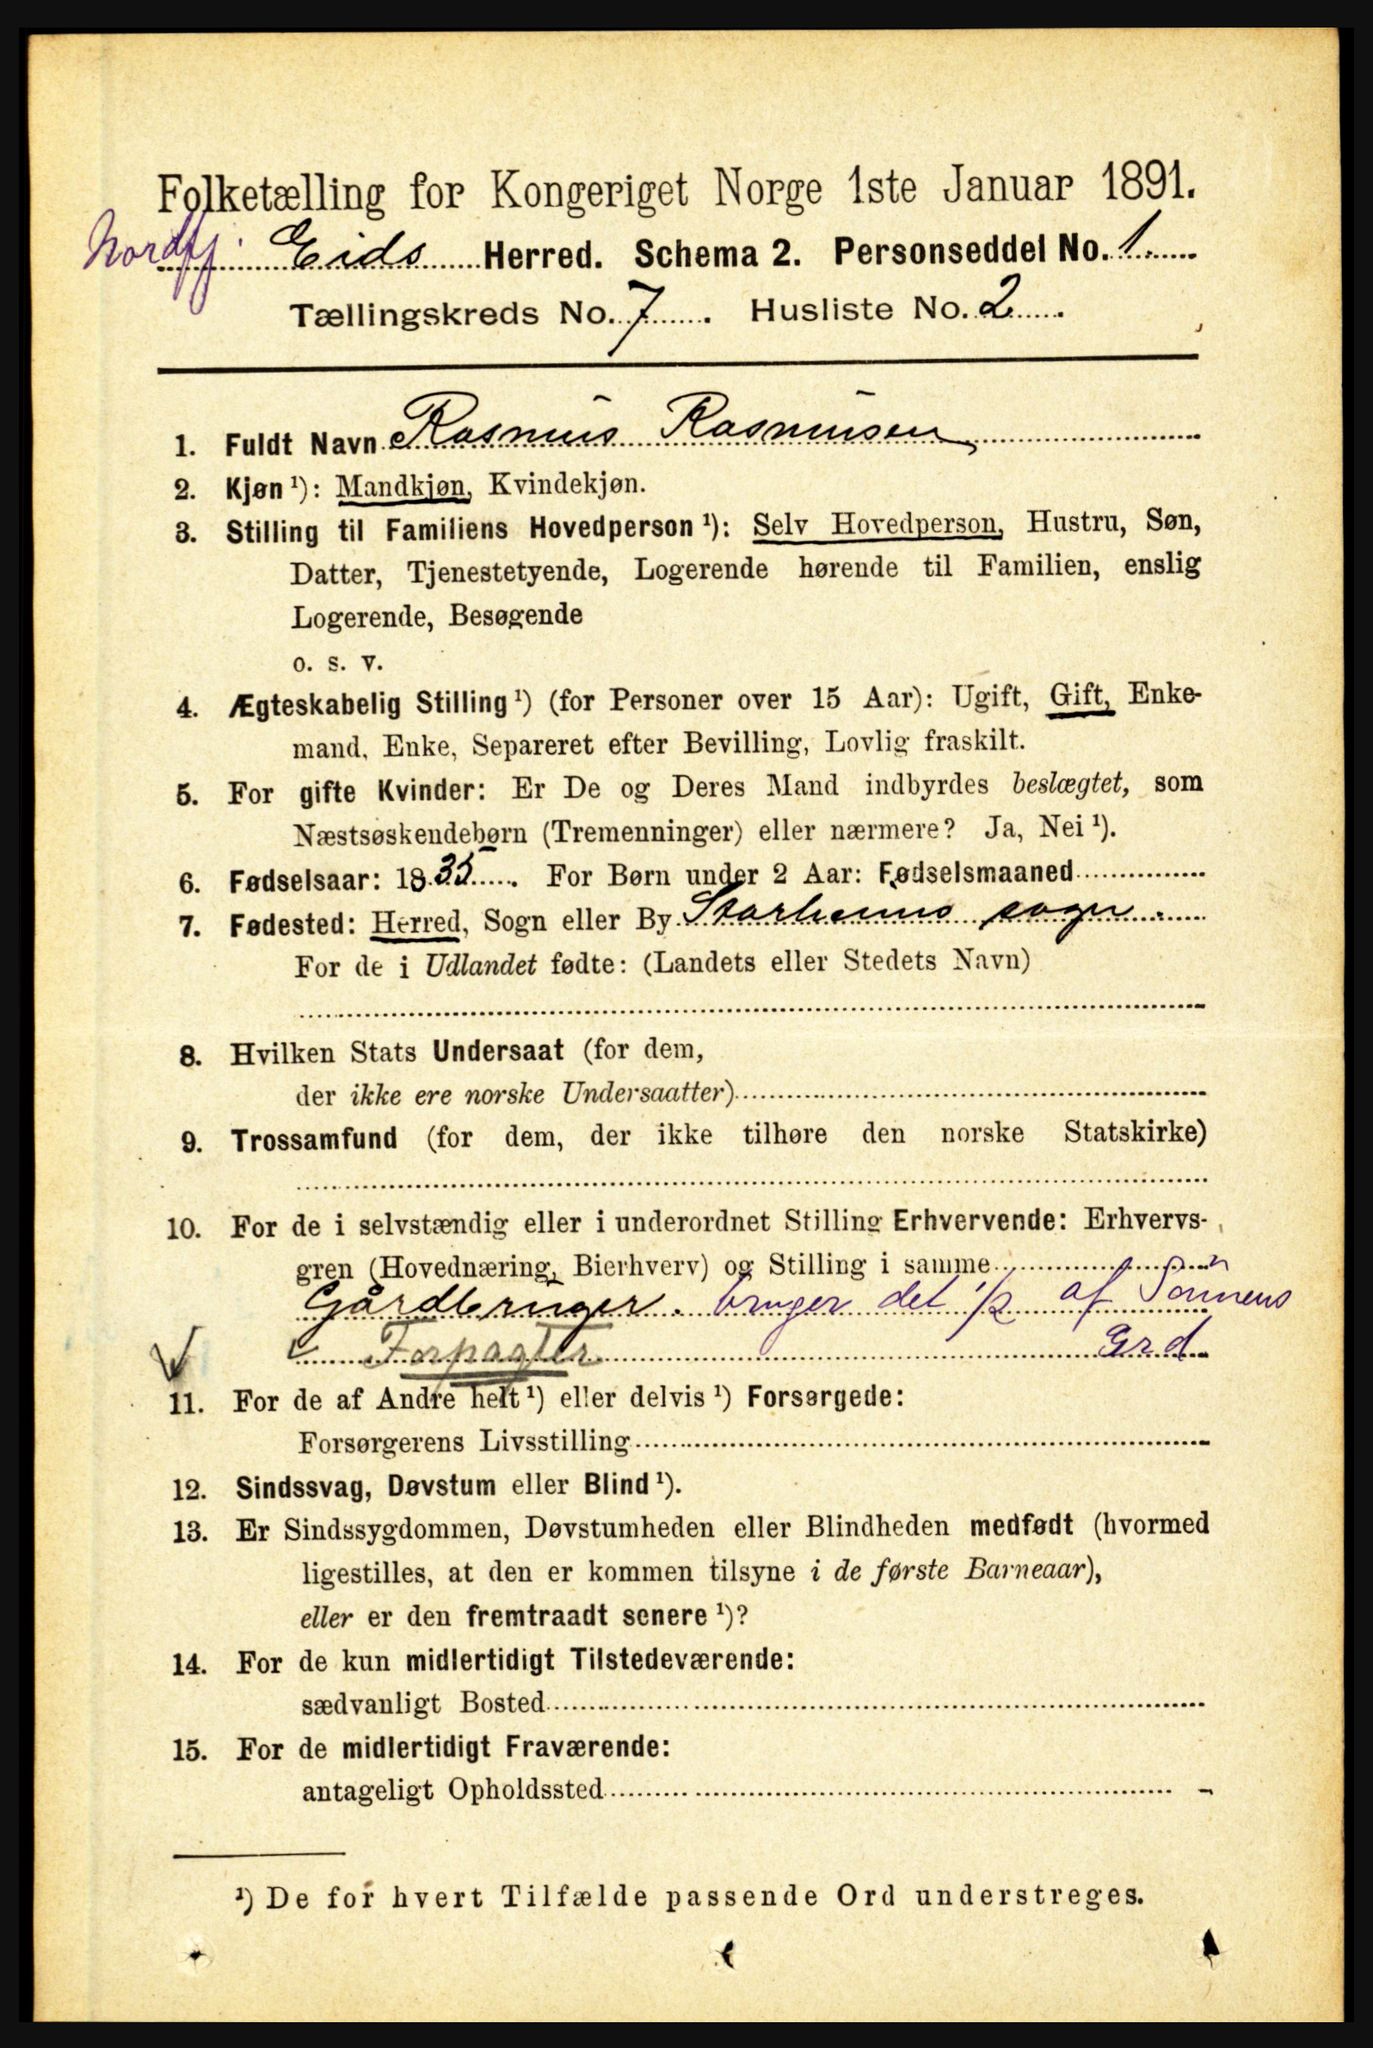 Folketælling for Kongeriget Norge 1ste Januar 1891.
Nordfj. Eids Herred. Schema 2. Personseddel No. 1.
Tællingskreds No. 7. Husliste No. 2.
1. Fuldt Navn Rasmus Rasmusen
2. Kjøn ¹): Mandkjøn, Kvindekjøn.
3. Stilling til Familiens Hovedperson ¹): Selv Hovedperson, Hustru, Søn,
Datter, Tjenestetyende, Logerende hørende til Familien, enslig
Logerende, Besøgende
o. s. v.
4. Ægteskabelig Stilling ¹) (for Personer over 15 Aar): Ugift, Gift, Enke-
mand, Enke, Separeret efter Bevilling, Lovlig fraskilt.
5. For gifte Kvinder: Er De og Deres Mand indbyrdes beslægtet, som
Næstsøskendebørn (Tremenninger) eller nærmere? Ja, Nei ¹).
6. Fødselsaar: 1835. For Børn under 2 Aar: Fødselsmaaned
7. Fødested: Herred, Sogn eller By Starheims sogn.
For de i Udlandet fødte: (Landets eller Stedets Navn)
8. Hvilken Stats Undersaat (for dem,
der ikke ere norske Undersaatter)
9. Trossamfund (for dem, der ikke tilhøre den norske Statskirke)
10. For de i selvstændig eller i underordnet Stilling Erhvervende: Erhvervs-
gren (Hovednæring, Bierhverv) og Stilling i samme
Gårdbruger. bruger det 1/2 af Sønnens
Forpagter Grd
11. For de af Andre helt ¹) eller delvis ¹) Forsørgede:
Forsørgerens Livsstilling
12. Sindssvag, Døvstum eller Blind ¹).
13. Er Sindssygdommen, Døvstumheden eller Blindheden medfødt (hvormed
ligestilles, at den er kommen tilsyne i de første Barneaar),
eller er den fremtraadt senere ¹)?
14. For de kun midlertidigt Tilstedeværende:
sædvanligt Bosted
15. For de midlertidigt Fraværende:
antageligt Opholdssted
¹) De for hvert Tilfælde passende Ord understreges.